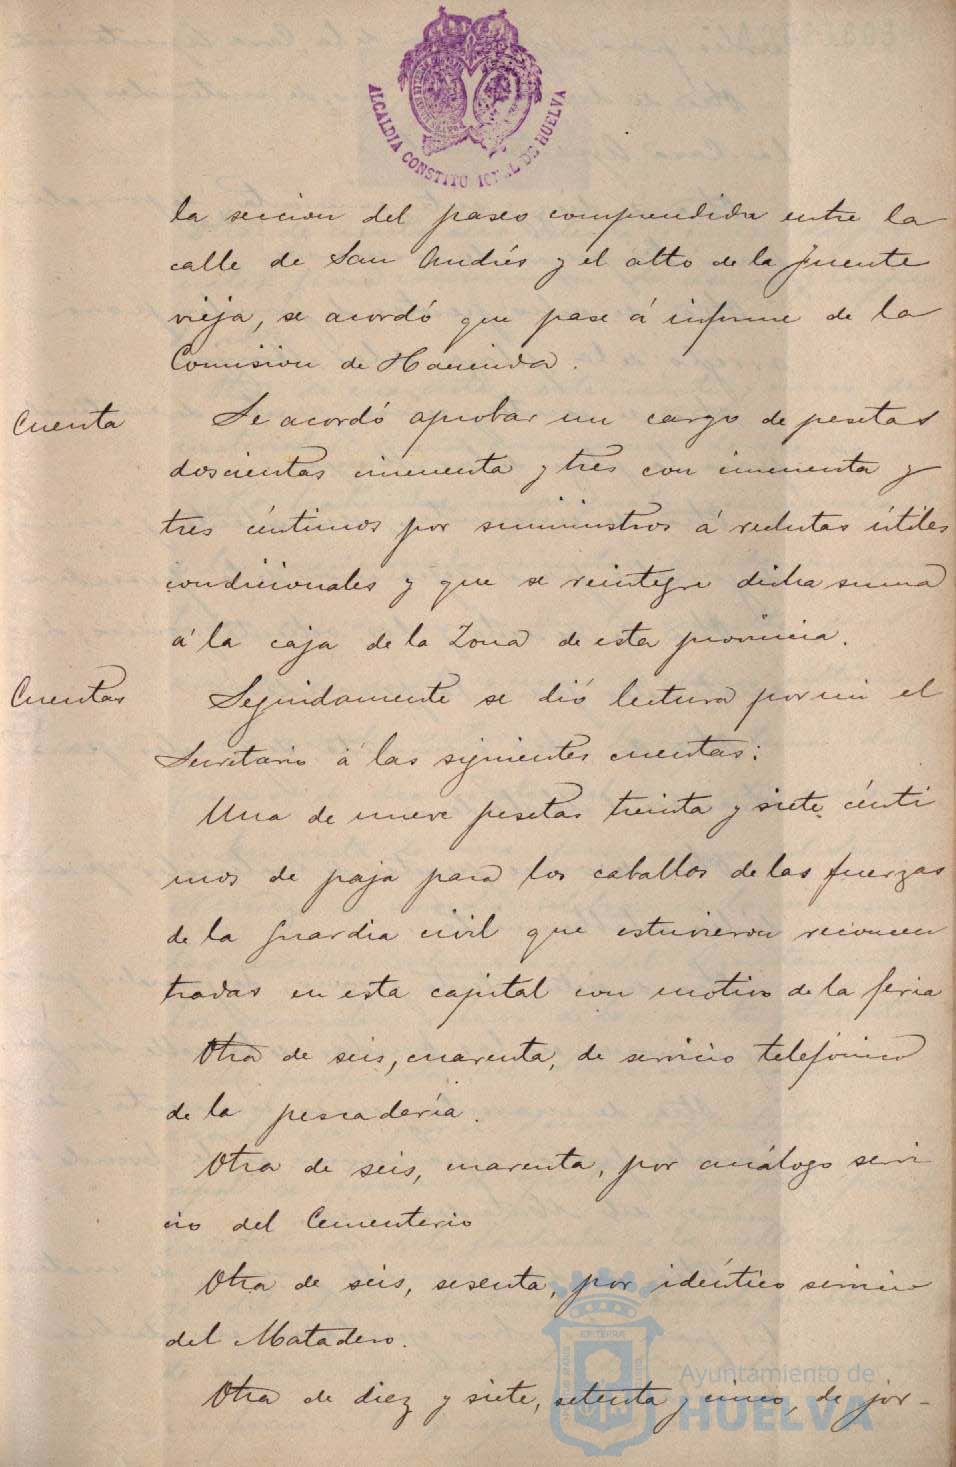 ALCALDIA CONSTITUCIONAL DE HUELVA
la seccion del paseo comprendida entre la
calle de San Andrés y el alto de la fuente
vieja, se acordó que pase á informe de la
Comision de Hacienda.
Cuenta
Se acordó aprobar un cargo de pesetas
doscientas cincuenta y tres con cincuenta y
tres céntimos por suministros á reclutas útiles
condicionales y que se reintegre dicha suma
á la caja de la Zona de esta provincia.
Cuentas
Seguidamente se dió lectura por mi el
Secretario á las siguientes cuentas:
Una de nueve pesetas treinta y siete cénti
mos de paja para los caballos de las fuerzas
de la guardia civil que estuvieron reconcen
tradas en esta capital con motivo de la feria
Otra de seis, cuarenta, de servicio telefónico
de la pescadería.
Otra de seis, cuarenta, por análogo servi
cio del Cementerio
Otra de seis, sesenta, por idéntico servicio
del Matadero.
Otra de diez y siete, setenta y cinco, de jor-
Ayuntamiento de
HUELVA